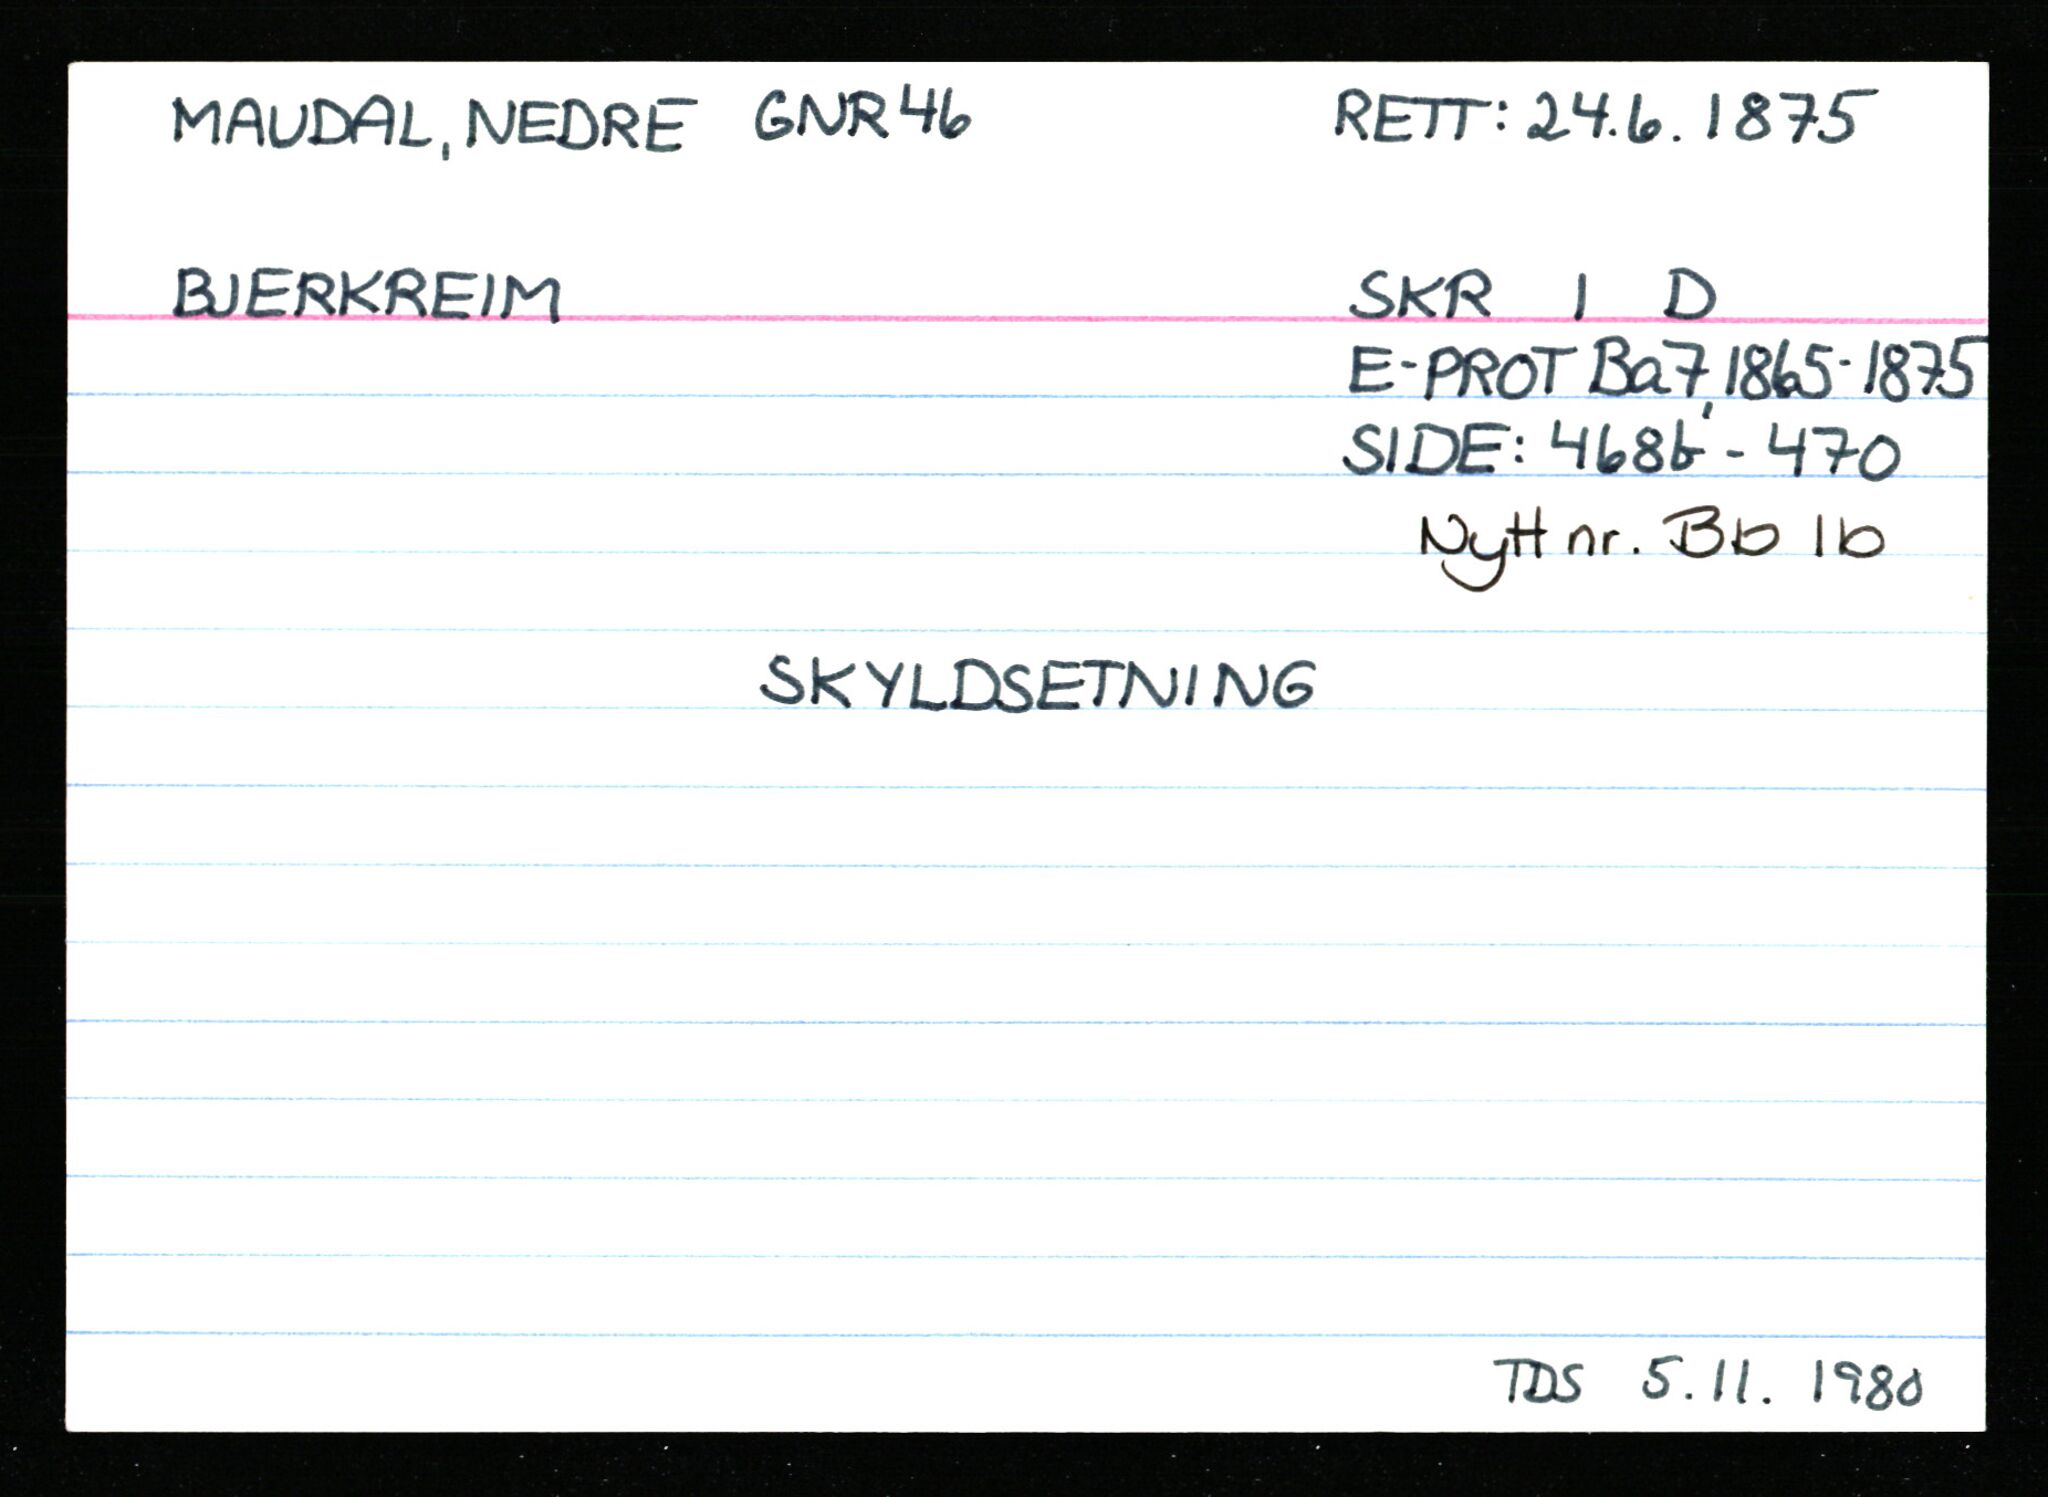 MAUDAL, NEDRE GNR 46 RETT: 24.6. 1875
BJERKREIM SKR I D
E-PROT Ba7, 1865-1875
SIDE: 468b - 470
Nytt nr. Bb 1b
SKYLDSETNING
TDS 5.11. 1980